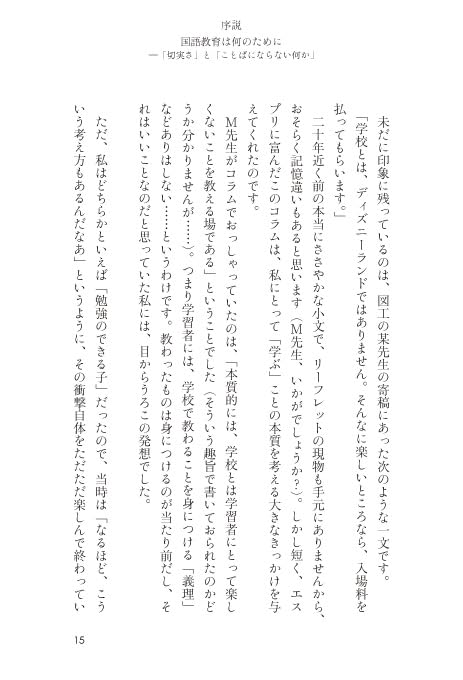 序説
国語教育は何のために
―「切実さ」と「ことばにならない何か」
未だに印象に残っているのは、図工の某先生の寄稿にあった次のような一文です。
「学校とは、ディズニーランドではありません。そんなに楽しいところなら、入場料を
払ってもらいます。」
二十年近く前の本当にささやかな小文で、リーフレットの現物も手元にありませんから、
おそらく記憶違いもあると思います（M先生、いかがでしょうか？）。しかし短く、エス
プリに富んだこのコラムは、私にとって「学ぶ」ことの本質を考える大きなきっかけを与
えてくれたのです。
M先生がコラムでおっしゃっていたのは、「本質的には、学校とは学習者にとって楽し
くないことを教える場である」ということでした（そういう趣旨で書いておられたのかど
うか分かりませんが……）。つまり学習者には、学校で教わることを身につける「義理」
などありはしない……というわけです。教わったものは身につけるのが当たり前だし、そ
れはいいことなのだと思っていた私には、目からうろこの発想でした。
ただ、私はどちらかといえば「勉強のできる子」だったので、当時は「なるほど、こう
いう考え方もあるんだなあ」というように、その衝撃自体をただただ楽しんで終わってい
15